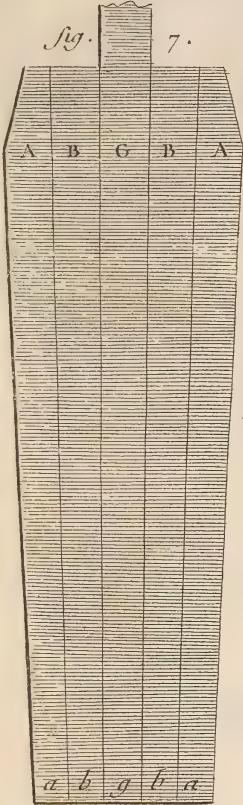 fig. 7.
A B G B A
a b g b a